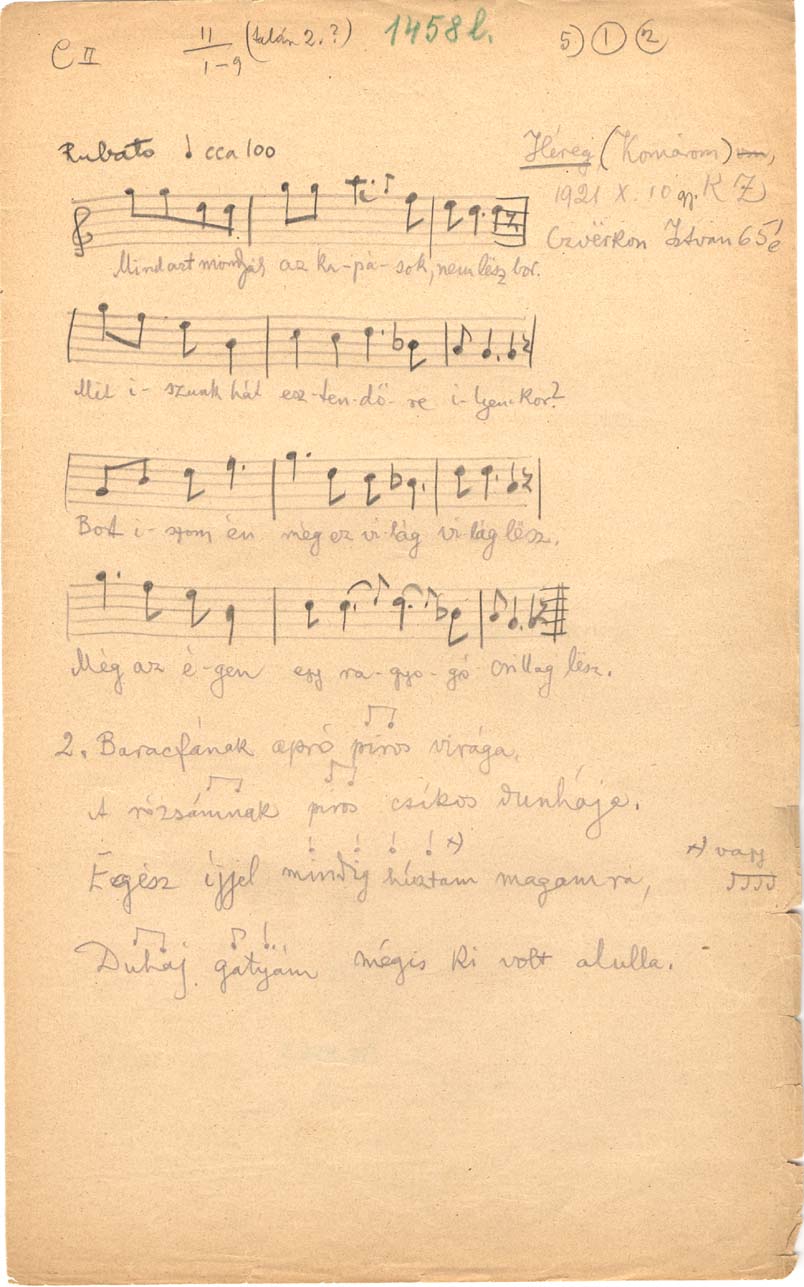 C II 11/1-9 (talán 2.?) 1458 l. 5) 1 2
Rubato cca 100
Héreg (Komárom)
1921 X. 10 gy. K Z
István 65 é
Mind azt mondják az ka-pá-sok, nem lësz bor.
Mit i-szunk hát esz-ten-dő-re i-lyen-kor?
Bort i-szom én még ez vi-lág vi-lág lësz.
Még az é-gen egy ra-gyo-gó csillag lësz.
2. Baracfának apró piros virága.
A rózsámnak piros csíkos dunhája.
Egész íjjel mindig húztam magamra,
x) vagy
Duhaj gatyám mégis ki volt alulla.